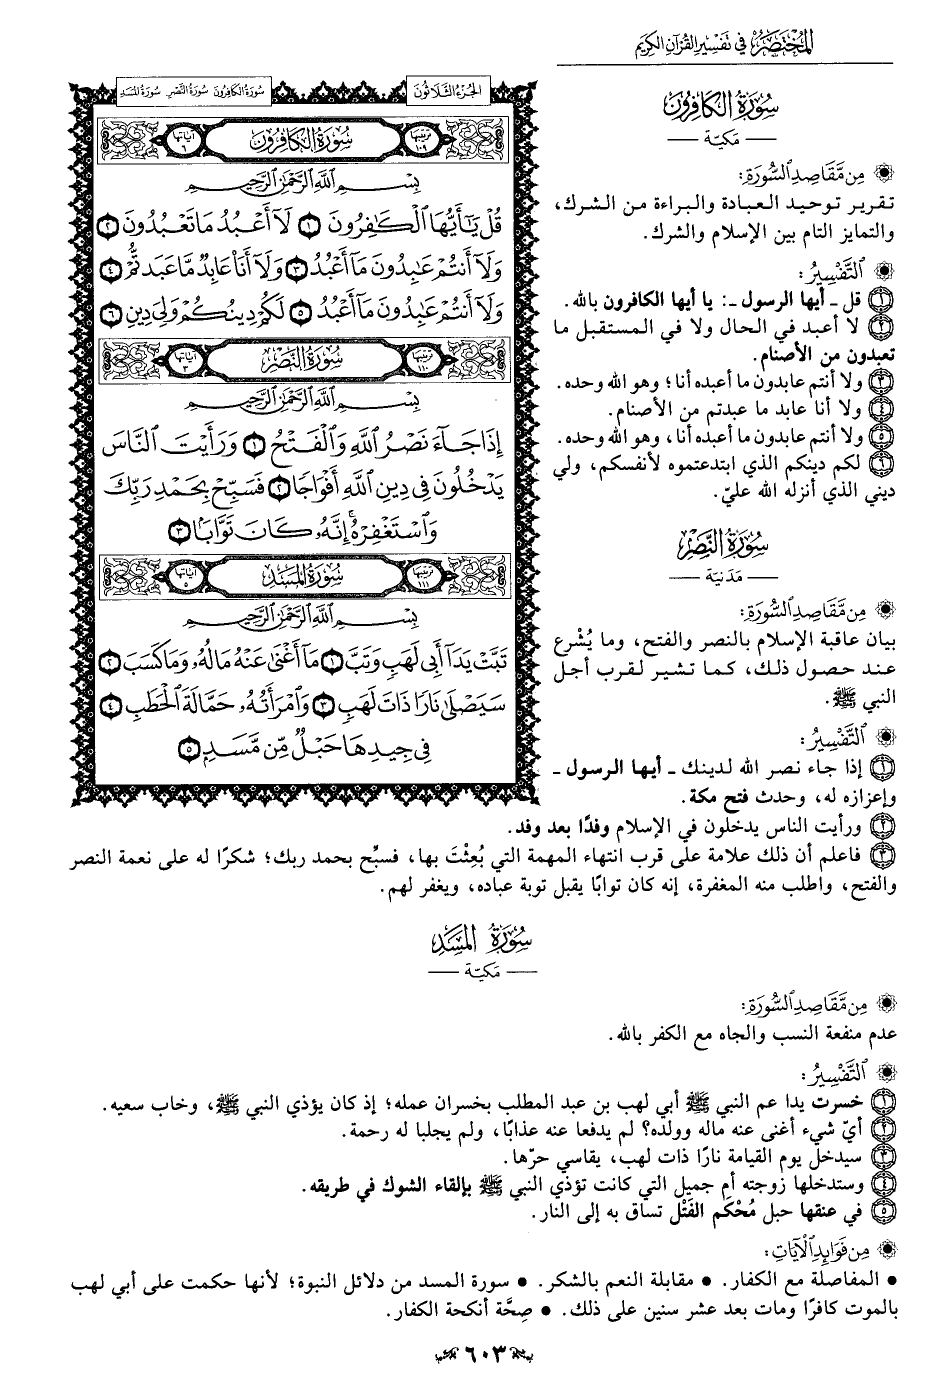 المختصر في تفسير القرآن الكريم
الجزء الثلاثون
سورة الكافرون سورة النصر سورة المسد
ترتيبها ١٠٩
سورة الكافرون
آياتها ٦
بِسْمِ اللَّهِ الرَّحْمَٰنِ الرَّحِيمِ
قُلْ يَٰٓأَيُّهَا ٱلْكَٰفِرُونَ ١ لَآ أَعْبُدُ مَا تَعْبُدُونَ ٢
وَلَآ أَنتُمْ عَٰبِدُونَ مَآ أَعْبُدُ ٣ وَلَآ أَنَا۠ عَابِدٌ مَّا عَبَدتُّمْ ٤
وَلَآ أَنتُمْ عَٰبِدُونَ مَآ أَعْبُدُ ٥ لَكُمْ دِينُكُمْ وَلِيَ دِينِ ٦
ترتيبها ١١٠
سورة النصر
آياتها ٣
بِسْمِ اللَّهِ الرَّحْمَٰنِ الرَّحِيمِ
إِذَا جَآءَ نَصْرُ ٱللَّهِ وَٱلْفَتْحُ ١ وَرَأَيْتَ ٱلنَّاسَ
يَدْخُلُونَ فِي دِينِ ٱللَّهِ أَفْوَاجًا ٢ فَسَبِّحْ بِحَمْدِ رَبِّكَ
وَٱسْتَغْفِرْهُ ۚ إِنَّهُۥ كَانَ تَوَّابًۢا ٣
ترتيبها ١١١
سورة المسد
آياتها ٥
بِسْمِ اللَّهِ الرَّحْمَٰنِ الرَّحِيمِ
تَبَّتْ يَدَآ أَبِي لَهَبٍ وَتَبَّ ١ مَآ أَغْنَىٰ عَنْهُ مَالُهُۥ وَمَا كَسَبَ ٢
سَيَصْلَىٰ نَارًا ذَاتَ لَهَبٍ ٣ وَٱمْرَأَتُهُۥ حَمَّالَةَ ٱلْحَطَبِ ٤
فِي جِيدِهَا حَبْلٌ مِّن مَّسَدٍۭ ٥
سورة الكافرون
— مكية —
من مقاصد السورة:
تقرير توحيد العبادة والبراءة من الشرك،
والتمايز التام بين الإسلام والشرك.
التفسير:
١ قل ـ أيها الرسول ـ: يا أيها الكافرون بالله.
٢ لا أعبد في الحال ولا في المستقبل ما
تعبدون من الأصنام.
٣ ولا أنتم عابدون ما أعبده أنا؛ وهو الله وحده.
٤ ولا أنا عابد ما عبدتم من الأصنام.
٥ ولا أنتم عابدون ما أعبده أنا، وهو الله وحده.
٦ لكم دينكم الذي ابتدعتموه لأنفسكم، ولي
ديني الذي أنزله الله عليّ.
سورة النصر
— مدنية —
من مقاصد السورة:
بيان عاقبة الإسلام بالنصر والفتح، وما يُشْرع
عند حصول ذلك، كما تشير لقرب أجل
النبي ﷺ.
التفسير:
١ إذا جاء نصر الله لدينك ـ أيها الرسول ـ
وإعزازه له، وحدث فتح مكة.
٢ ورأيت الناس يدخلون في الإسلام وفدًا بعد وفد.
٣ فاعلم أن ذلك علامة على قرب انتهاء المهمة التي بُعِثْتَ بها، فسبِّح بحمد ربك؛ شكرًا له على نعمة النصر
والفتح، واطلب منه المغفرة، إنه كان توابًا يقبل توبة عباده، ويغفر لهم.
سورة المسد
— مكية —
من مقاصد السورة:
عدم منفعة النسب والجاه مع الكفر بالله.
التفسير:
١ خسرت يدا عم النبي ﷺ أبي لهب بن عبد المطلب بخسران عمله؛ إذ كان يؤذي النبي ﷺ، وخاب سعيه.
٢ أيّ شيء أغنى عنه ماله وولده؟ لم يدفعا عنه عذابًا، ولم يجلبا له رحمة.
٣ سيدخل يوم القيامة نارًا ذات لهب، يقاسي حرّها.
٤ وستدخلها زوجته أم جميل التي كانت تؤذي النبي ﷺ بإلقاء الشوك في طريقه.
٥ في عنقها حبل مُحْكَم الفَتْل تساق به إلى النار.
من فوائد الآيات:
• المفاصلة مع الكفار. • مقابلة النعم بالشكر. • سورة المسد من دلائل النبوة؛ لأنها حكمت على أبي لهب
بالموت كافرًا ومات بعد عشر سنين على ذلك. • صِحَّة أنكحة الكفار.
٦٠٣